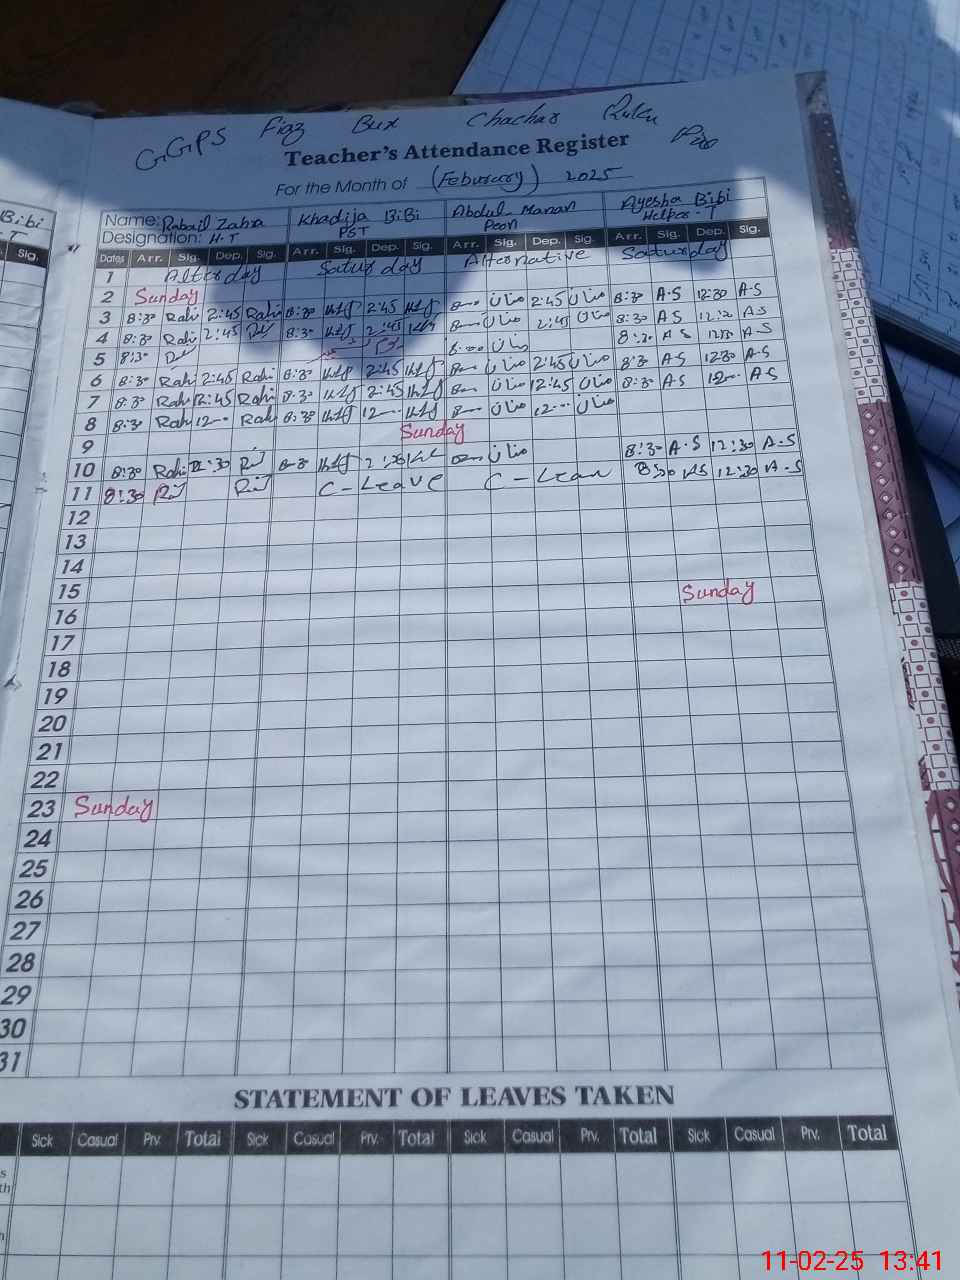 GGPS Fiaz Bux Chachar Ruku
Teacher's Attendance Register
For the Month of (Feburary) 2025
Bibi
Name: Rabail Zahra Khadija BiBi Abdul Manan Ayesha Bibi
Designation: H.T PST Peon Helper-T
Sig.
Dates Arr. Sig. Dep. Sig. Arr. Sig. Dep. Sig. Arr. Sig. Dep. Sig. Arr. Sig. Dep. Sig.
1 Alterday Saturday Alternative Saturday
2 Sunday
3 8:30 Rahi 2:45 Rahi 8:30 2:45 منان 2:45 منان 8:30 A.S 12:30 A.S
4 8:30 Rahi 2:45 8:30 2:45 منان 2:45 منان A S A.S
5 8:30 8:00 منان A S A.S
6 8:30 Rahi 2:45 Rahi 8:30 2:45 منان 2:45 منان 8:30 A-S 12:30 A.S
7 8:30 Rahi 12:45 Rahi 8:30 2:45 منان 12:45 منان 8:30 A.S A-S
8 8:30 Rahi 12 Rahi 8:30 12 منان 12 منان
9 Sunday
10 8:30 Rahi 12:30 منان 8:30 A.S 12:30 A.S
11 8:30 C-Leave C-Leave 8:30 AS 12:30 A-S
12
13
14
15
16 Sunday
17
18
19
20
21
22
23 Sunday
24
25
26
27
28
29
30
31
STATEMENT OF LEAVES TAKEN
Sick Casual Prv. Total Sick Casual Prv. Total Sick Casual Prv. Total Sick Casual Prv. Total
11-02-25 13:41